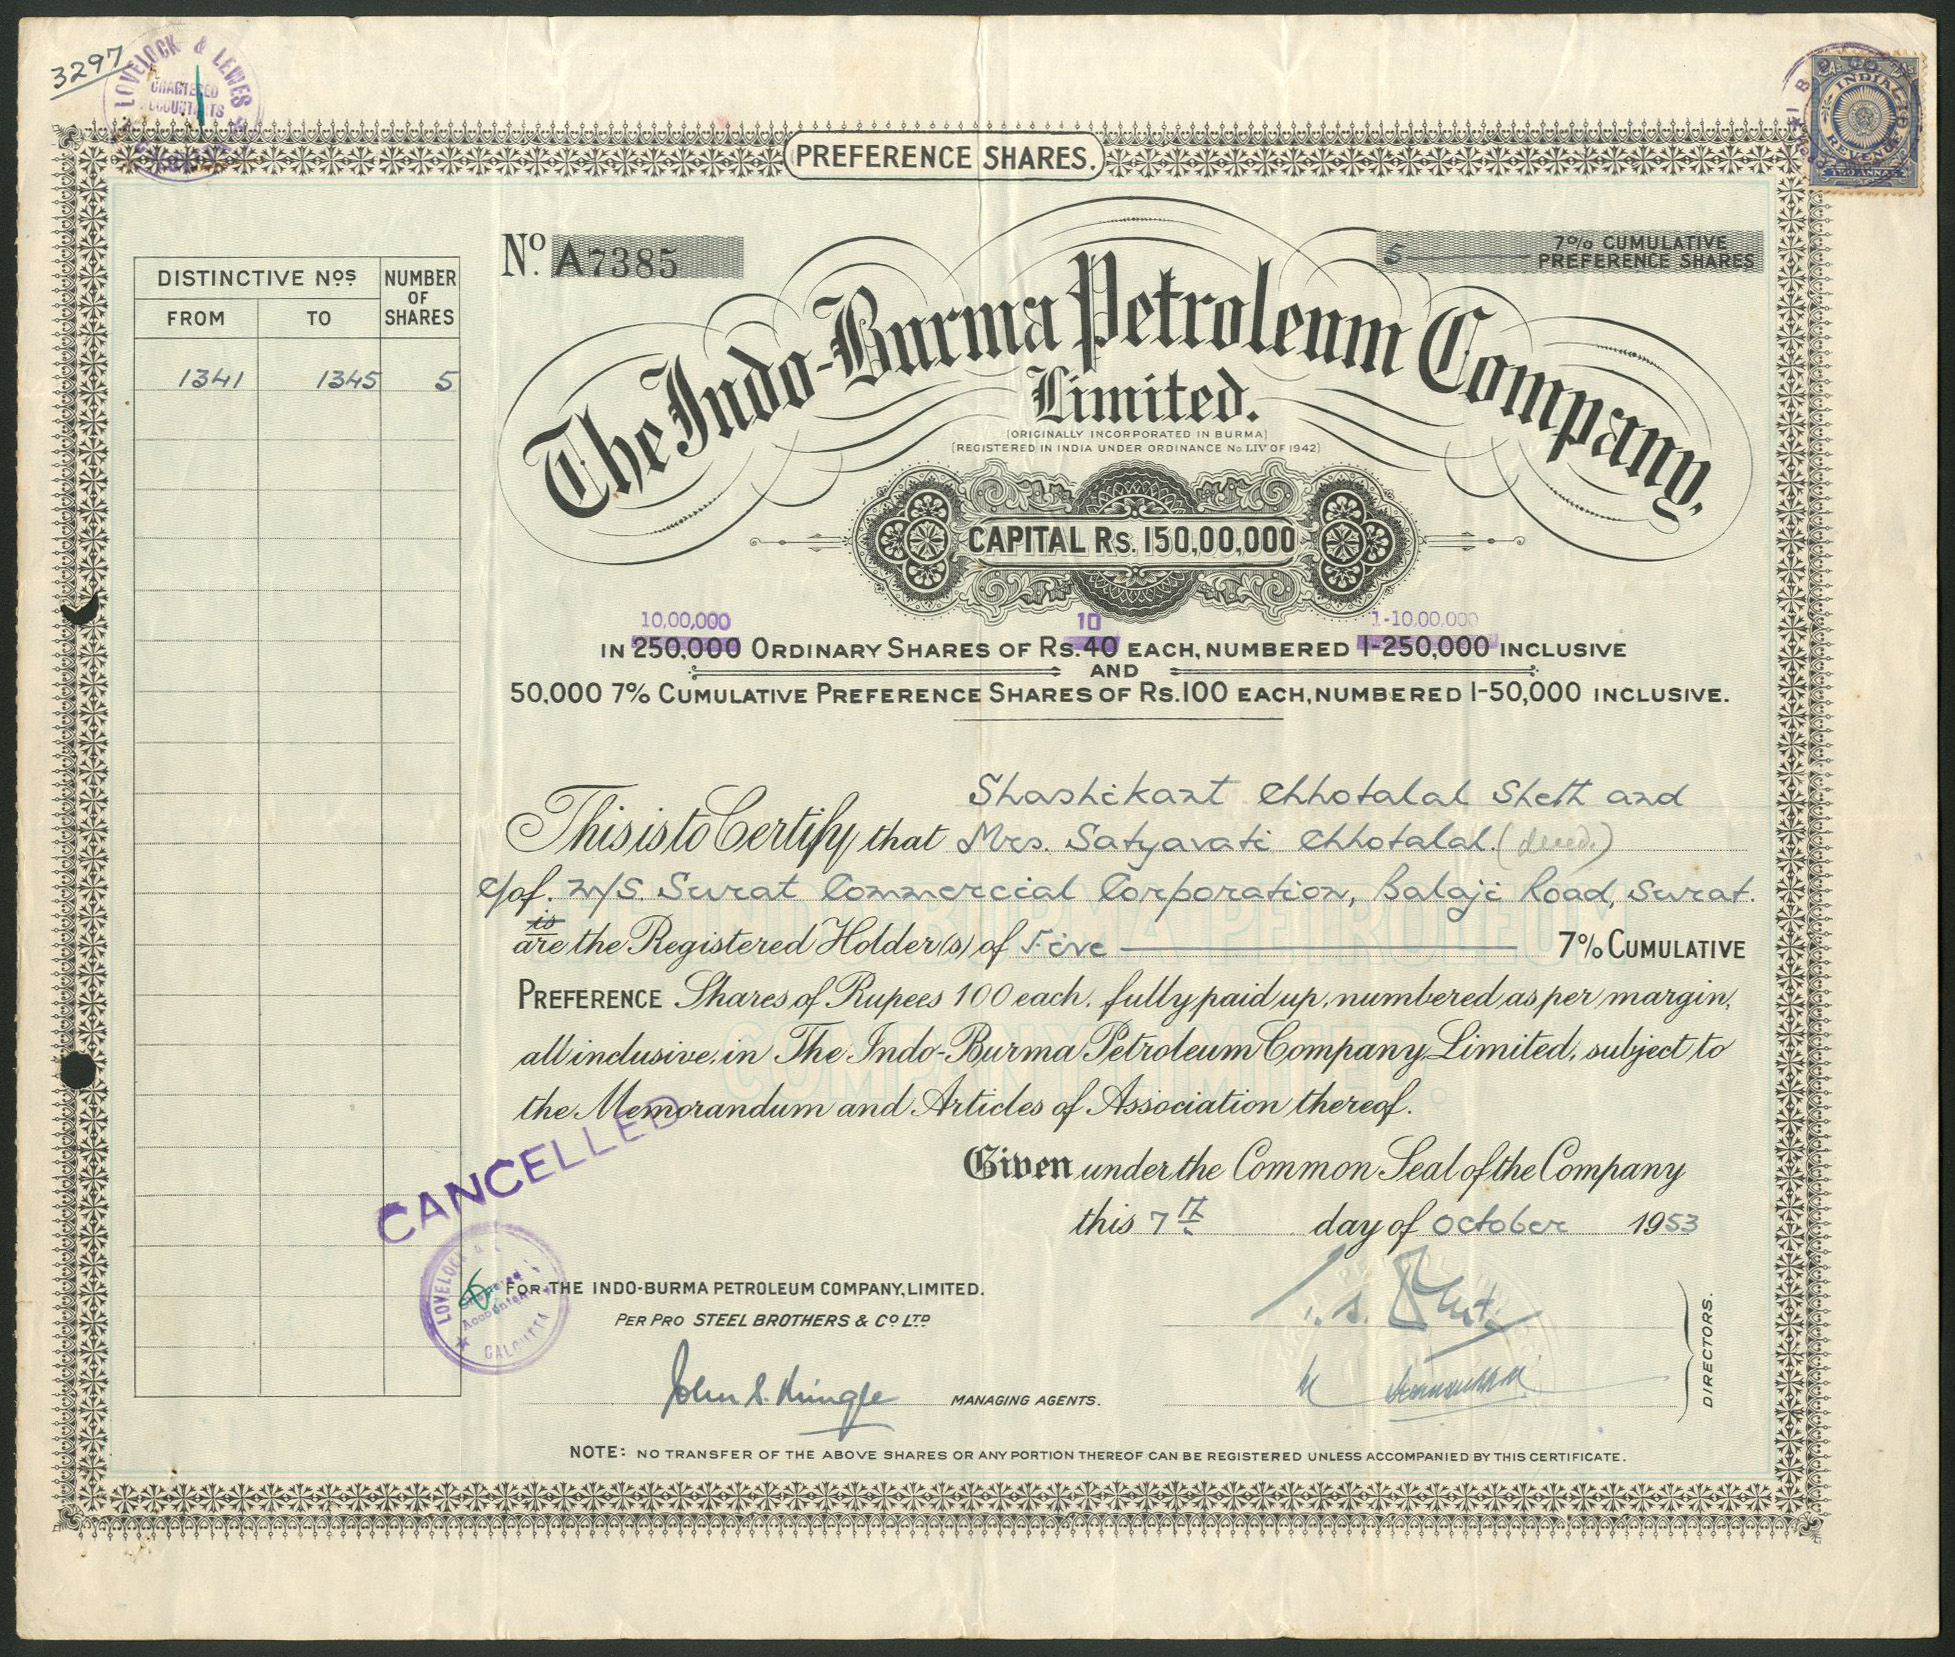 3297
LOVELOCK & LEWES
CHARTERED
ACCOUNTANTS
I. B. P. CO.
INDIA
REVENUE
TWO ANNAS
PREFERENCE SHARES.
No. A7385
5 7% CUMULATIVE
PREFERENCE SHARES
DISTINCTIVE Nos NUMBER OF SHARES
FROM TO
1341 1345 5
The Indo-Burma Petroleum Company,
Limited.
(ORIGINALLY INCORPORATED IN BURMA)
(REGISTERED IN INDIA UNDER ORDINANCE No LIV OF 1942)
CAPITAL Rs. 150,00,000
10,00,000 10 1-10,00,000
IN 250,000 ORDINARY SHARES OF Rs. 40 EACH, NUMBERED 1-250,000 INCLUSIVE
AND
50,000 7% CUMULATIVE PREFERENCE SHARES OF Rs. 100 EACH, NUMBERED 1-50,000 INCLUSIVE.
Shashikant Chhotalal Sheth and
This is to Certify that Mrs. Satyavati Chhotalal. (deced.)
c/of. M/S. Surat Commercial Corporation, Balaji Road, Surat.
is
are the Registered Holder(s) of Five 7% CUMULATIVE
PREFERENCE Shares of Rupees 100 each, fully paid up, numbered as per margin,
all inclusive, in The Indo-Burma Petroleum Company, Limited, subject to
the Memorandum and Articles of Association thereof.
THE INDO-BURMA PETROLEUM
COMPANY LIMITED.
CANCELLED
Given under the Common Seal of the Company
this 7th day of October 1953
LOVELOCK &
Accountants
CALCUTTA
FOR THE INDO-BURMA PETROLEUM COMPANY, LIMITED.
PER PRO STEEL BROTHERS & Co LTD
MANAGING AGENTS.
DIRECTORS.
NOTE: NO TRANSFER OF THE ABOVE SHARES OR ANY PORTION THEREOF CAN BE REGISTERED UNLESS ACCOMPANIED BY THIS CERTIFICATE.